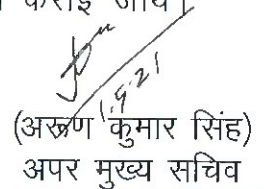 कराई जाय।
1.5.21
(अरूण कुमार सिंह)
अपर मुख्य सचिव